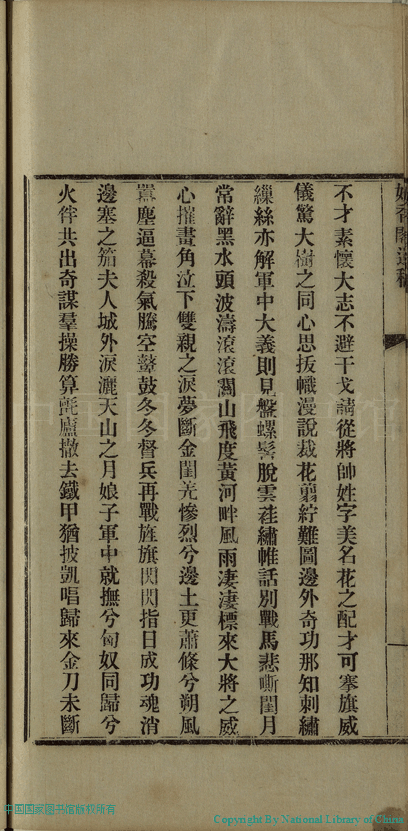 不才素懷大志不避干戈請從將帥姓字美名花之配才可搴旗威
儀驚大樹之同心思拔幟漫說裁花翦紵難圖邊外奇功那知刺繡
繅絲亦解軍中大義則見盤螺髻脫雲鞋繡帷話別戰馬悲嘶閨月
常辭黑水頭波濤滾滾關山飛度黃河畔風雨凄凄標來大將之威
心摧畫角泣下雙親之淚夢斷金閨羌慘烈兮邊土更蕭條兮朔風
囂塵逼幕殺氣騰空鼙鼓冬冬督兵再戰旌旗閃閃指日成功魂消
邊塞之笳夫人城外淚灑天山之月娘子軍中就撫兮匈奴同歸兮
火伴共出奇謀羣操勝算氈廬撤去鐵甲猶披凱唱歸來金刀未斷
中国国家图书馆版权所有
Copyright By National Library of China